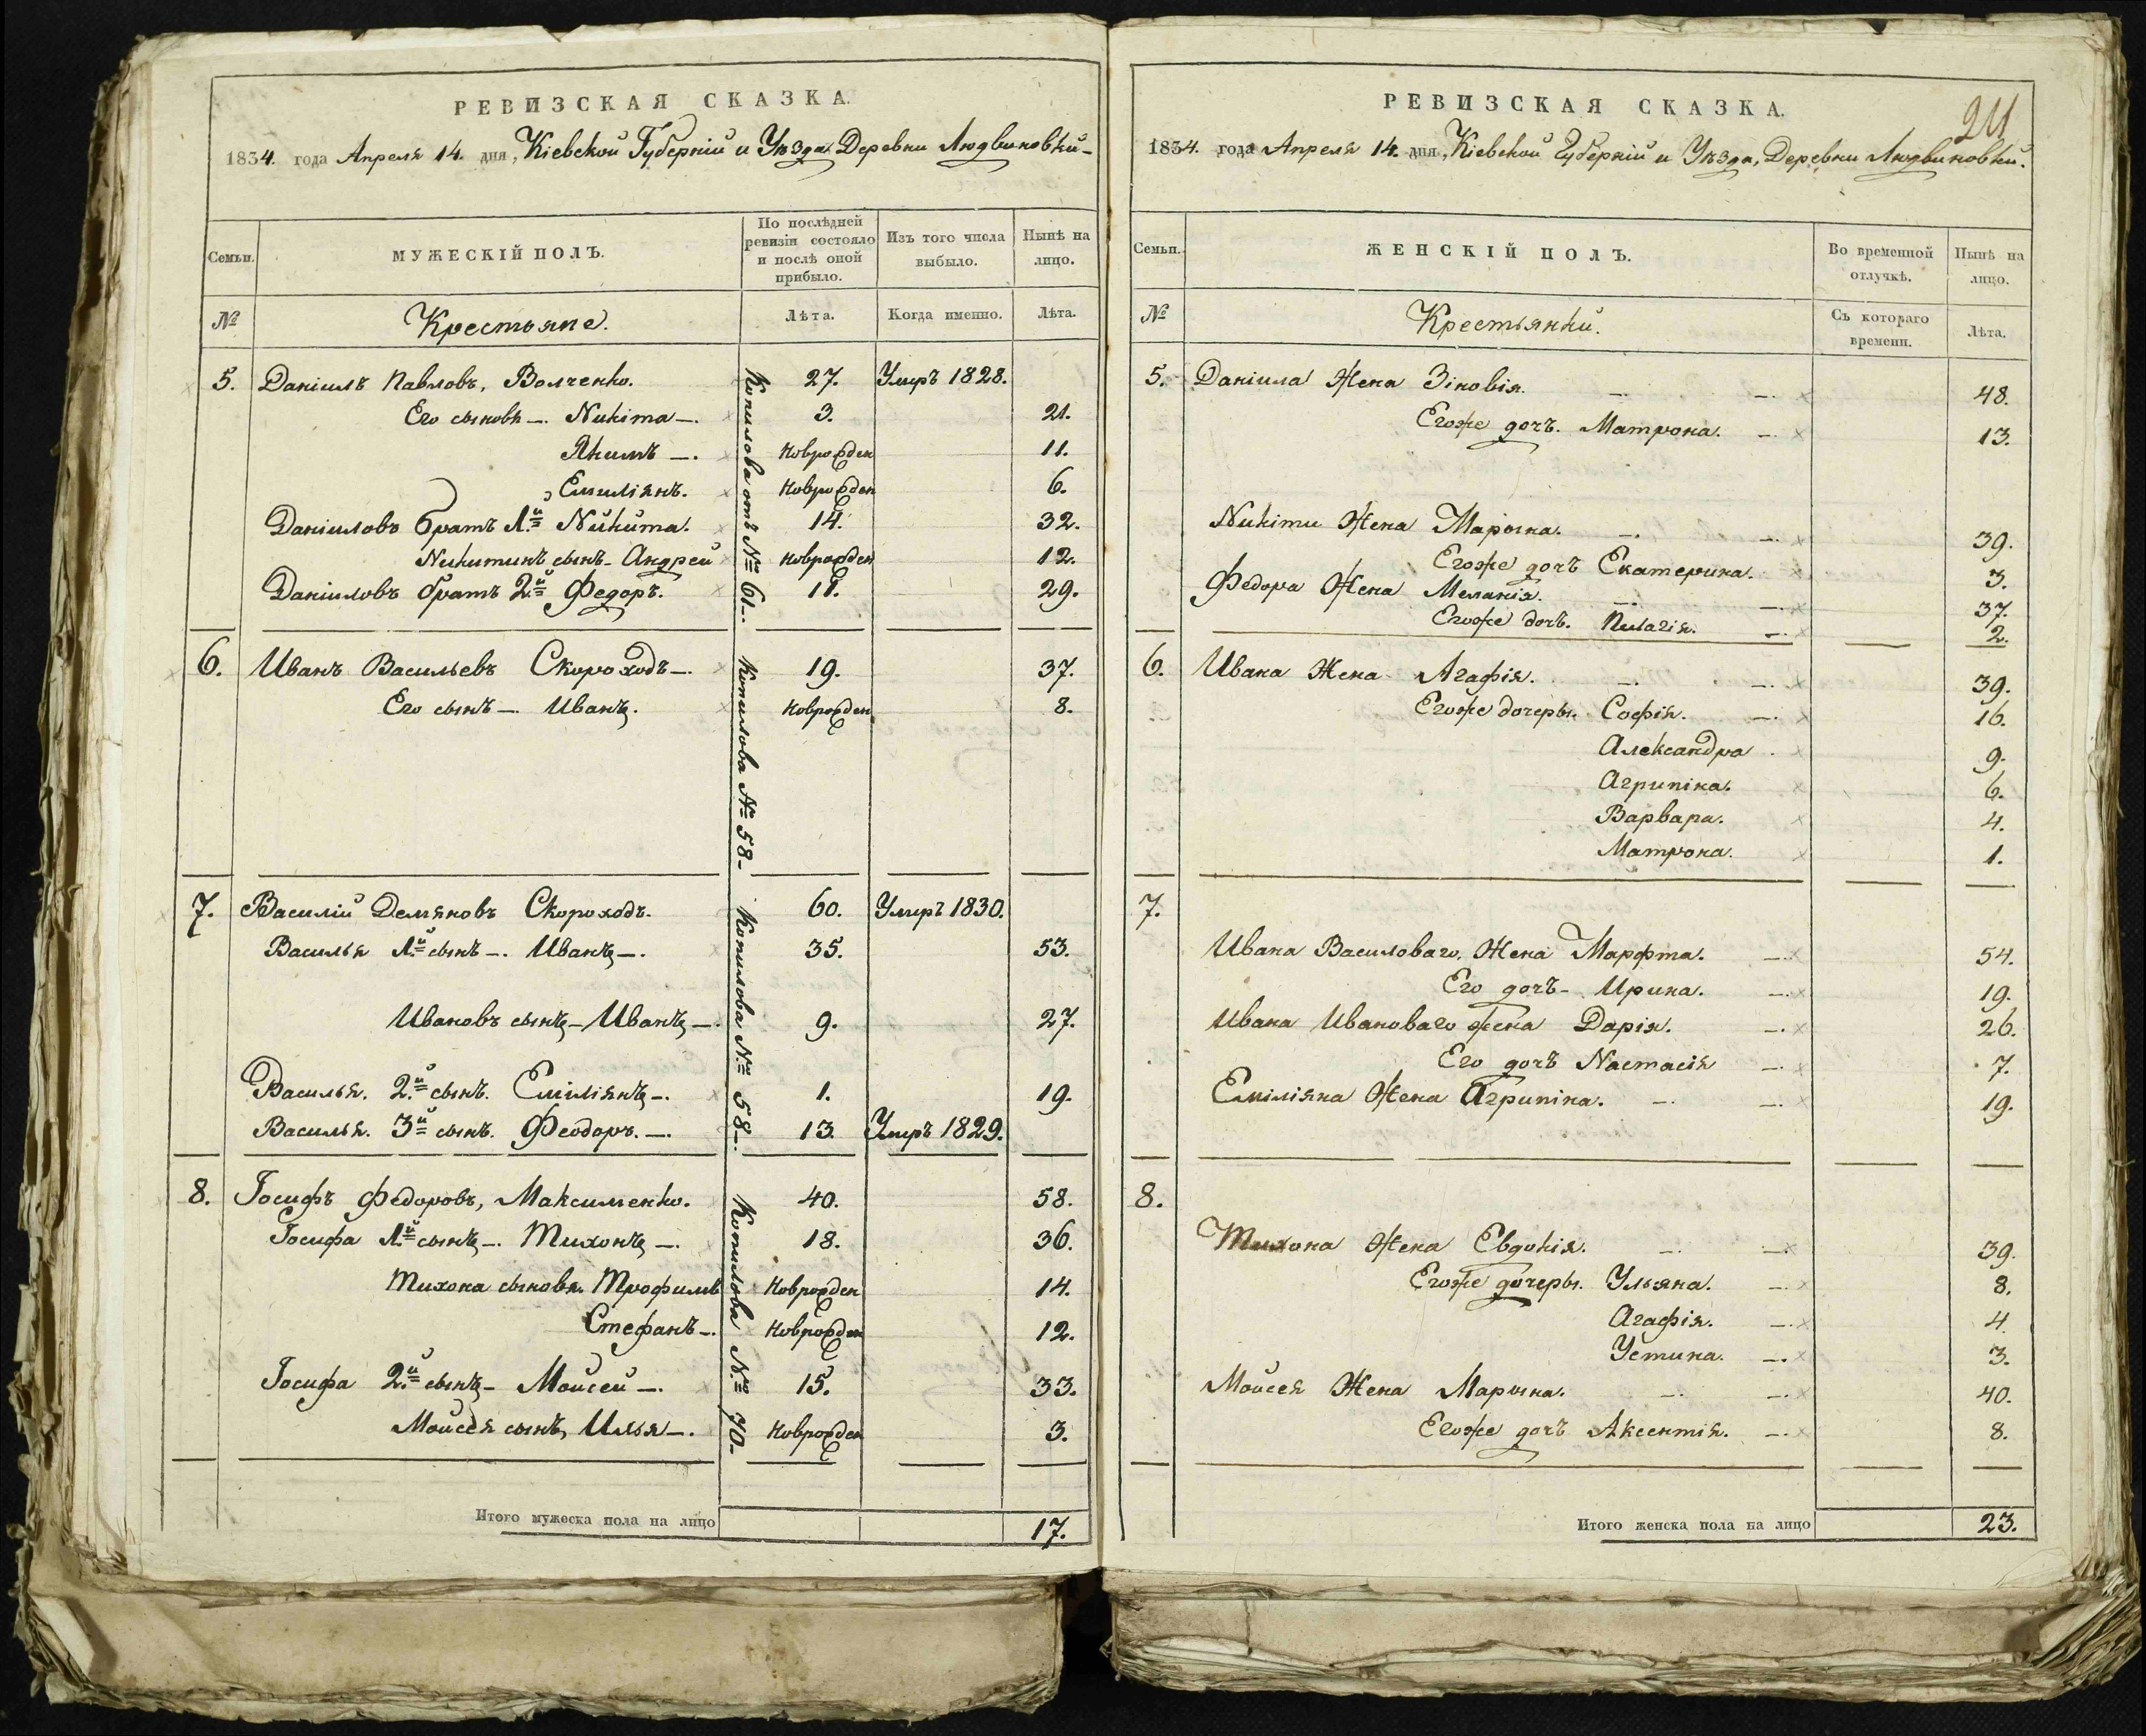 РЕВИЗСКАЯ СКАЗКА.
1834. года Апреля 14. дня, Кіевской Губерніи и Уѣзда Деревни Людвиновки
Семьи.
МУЖЕСКІЙ ПОЛЪ.
По послѣдней ревизіи состояло и послѣ оной прибыло.
Изъ того числа выбыло.
Нынѣ на лицо.
№
Крестьяне.
Лѣта.
Когда именно.
Лѣта.
5. Даніилъ Павловъ, Волченко. 27. Умръ 1828.
Его сыновя -. Nикіта -. 3. 21.
Якимъ -. новорожден 11.
Емиліянъ. новорожден 6.
Даніиловъ братъ 1.й Nикита. 14. 32.
Nикитинъ сынъ - Андрей новорожден 12.
Даніиловъ братъ 2.й Федоръ. 11. 29.
Копилова отъ № 61 -.
6. Иванъ Васильевъ Скороходъ -. 19. 37.
Его сынъ -. Иванъ. новорожден 8.
Копилова № 58 -
7. Василій Демяновъ Скороходъ. 60. Умръ 1830.
Василья 1.й сынъ -. Иванъ -. 35. 53.
Ивановъ сынъ - Иванъ -. 9. 27.
Василья. 2.й сынъ. Еміліянъ -. 1. 19.
Василья. 3й сынъ. Феодоръ. -. 13. Умръ 1829.
Копилова № 58 -.
8. Іосифъ Федоровъ, Максименко. 40. 58.
Іосифа 1.й сынъ -. Тихонъ -. 18. 36.
Тихона сыновя. Трофимъ новорожден 14.
Стефанъ -. новорожден 12.
Іосифа 2.й сынъ - Мойсей -. 15. 33.
Мойсея сынъ, Илья -. новорожден 3.
Копилова № 70 -
Итого мужеска пола на лицо 17.
РЕВИЗСКАЯ СКАЗКА.
24
1834. года Апреля 14. дня, Кіевской Губерніи и Уѣзда, Деревни Людвиновки.
Семьи.
ЖЕНСКІЙ ПОЛЪ.
Во временной отлучкѣ.
Нынѣ на лицо.
№
Крестьянки.
Съ котораго времени.
Лѣта.
5. Даніила Жена Зіновія. 48.
Егоже дочъ. Матрона. - 13.
Nикіти Жена Марына. 39.
Егоже дочъ Екатерина. 3.
Федора Жена Меланія. 37.
Егоже дочъ. Пилагія. 2.
6. Ивана Жена Агафія. 39.
Егоже дочеры. Софія. 16.
Александра. 9.
Агрипіна. 6.
Варвара. 4.
Матрона. 1.
7.
Ивана Василоваго, Жена Марфта. 54.
Его дочъ - Ирина. 19.
Ивана Ивановаго жена Дарія. 26.
Его дочъ Nастасія 7.
Еміліяна Жена Агрипіна. 19.
8.
Тихона Жена Евдокія. 39.
Егоже дочеры. Ульяна. 8.
Агафія. 4.
Устина. 3.
Мойсея Жена Марына. 40.
Егоже дочъ Аксентія. 8.
Итого женска пола на лицо 23.